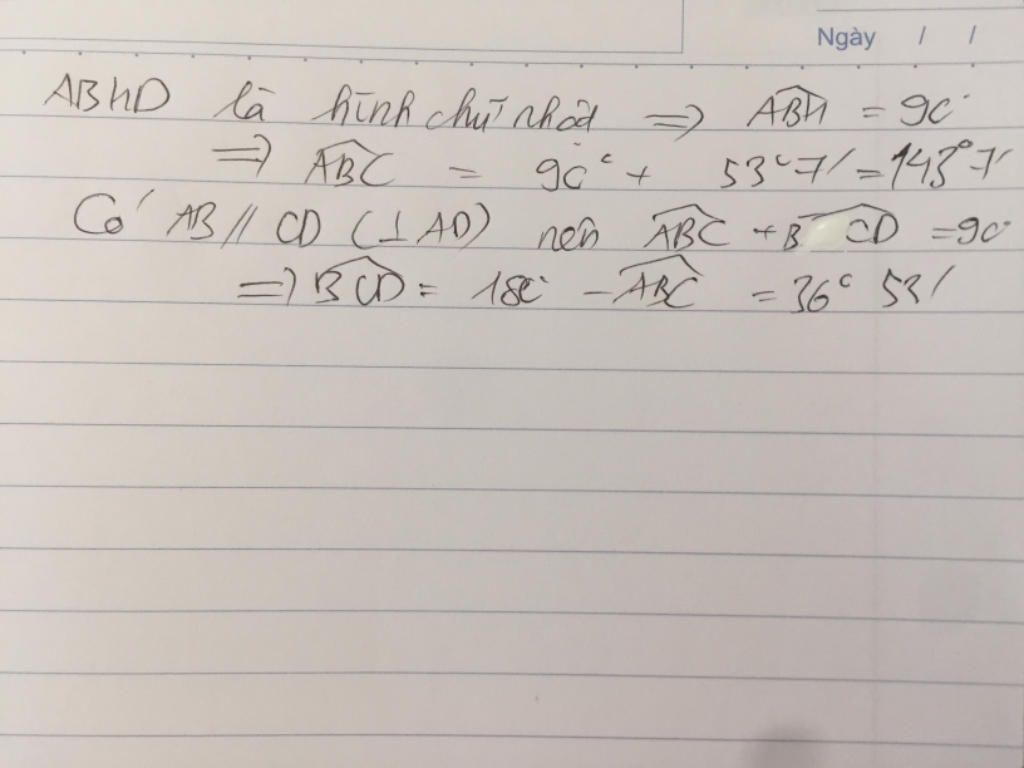 Ngày / /
ABHD là hình chữ nhật => \widehat{ABH} = 90°
=> \widehat{ABC} = 90° + 53°7' = 143°7'
Có AB // CD (⊥ AD) nên \widehat{ABC} + \widehat{BCD} = 90
=> \widehat{BCD} = 180° - \widehat{ABC} = 36° 53'